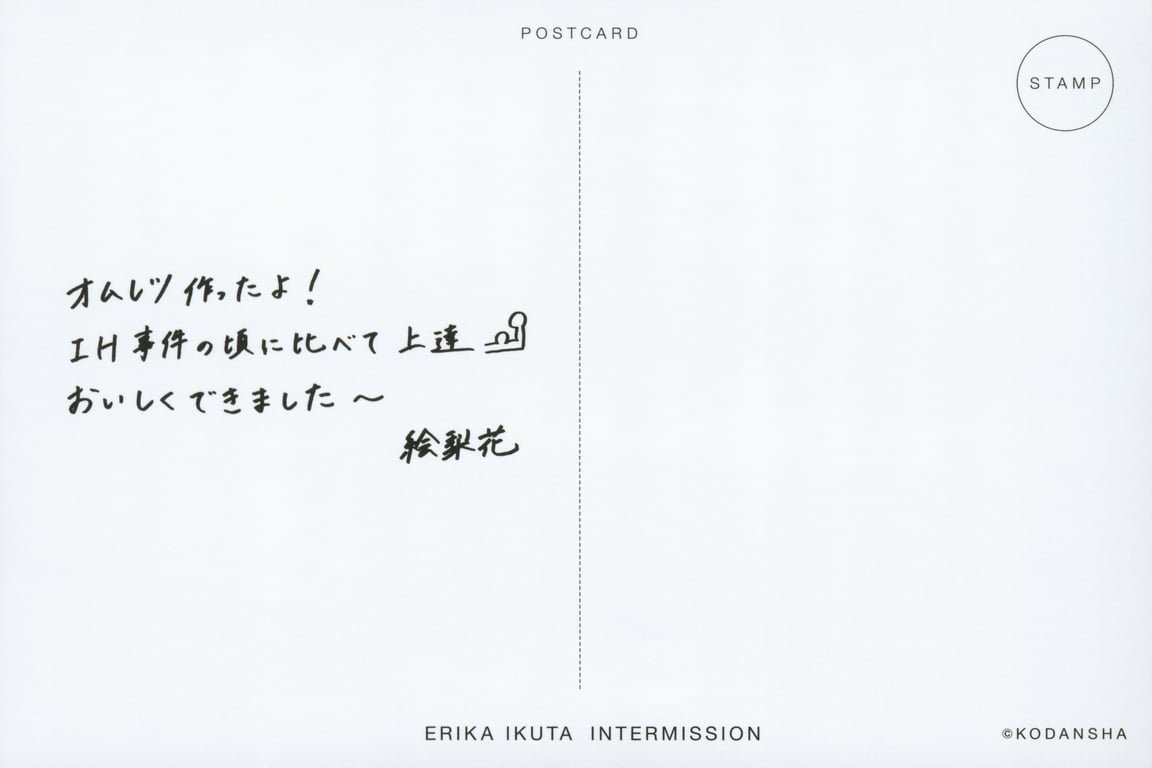 POSTCARD
STAMP
オムレツ作ったよ！
IH事件の頃に比べて上達
おいしくできました〜
絵梨花
ERIKA IKUTA INTERMISSION
©KODANSHA